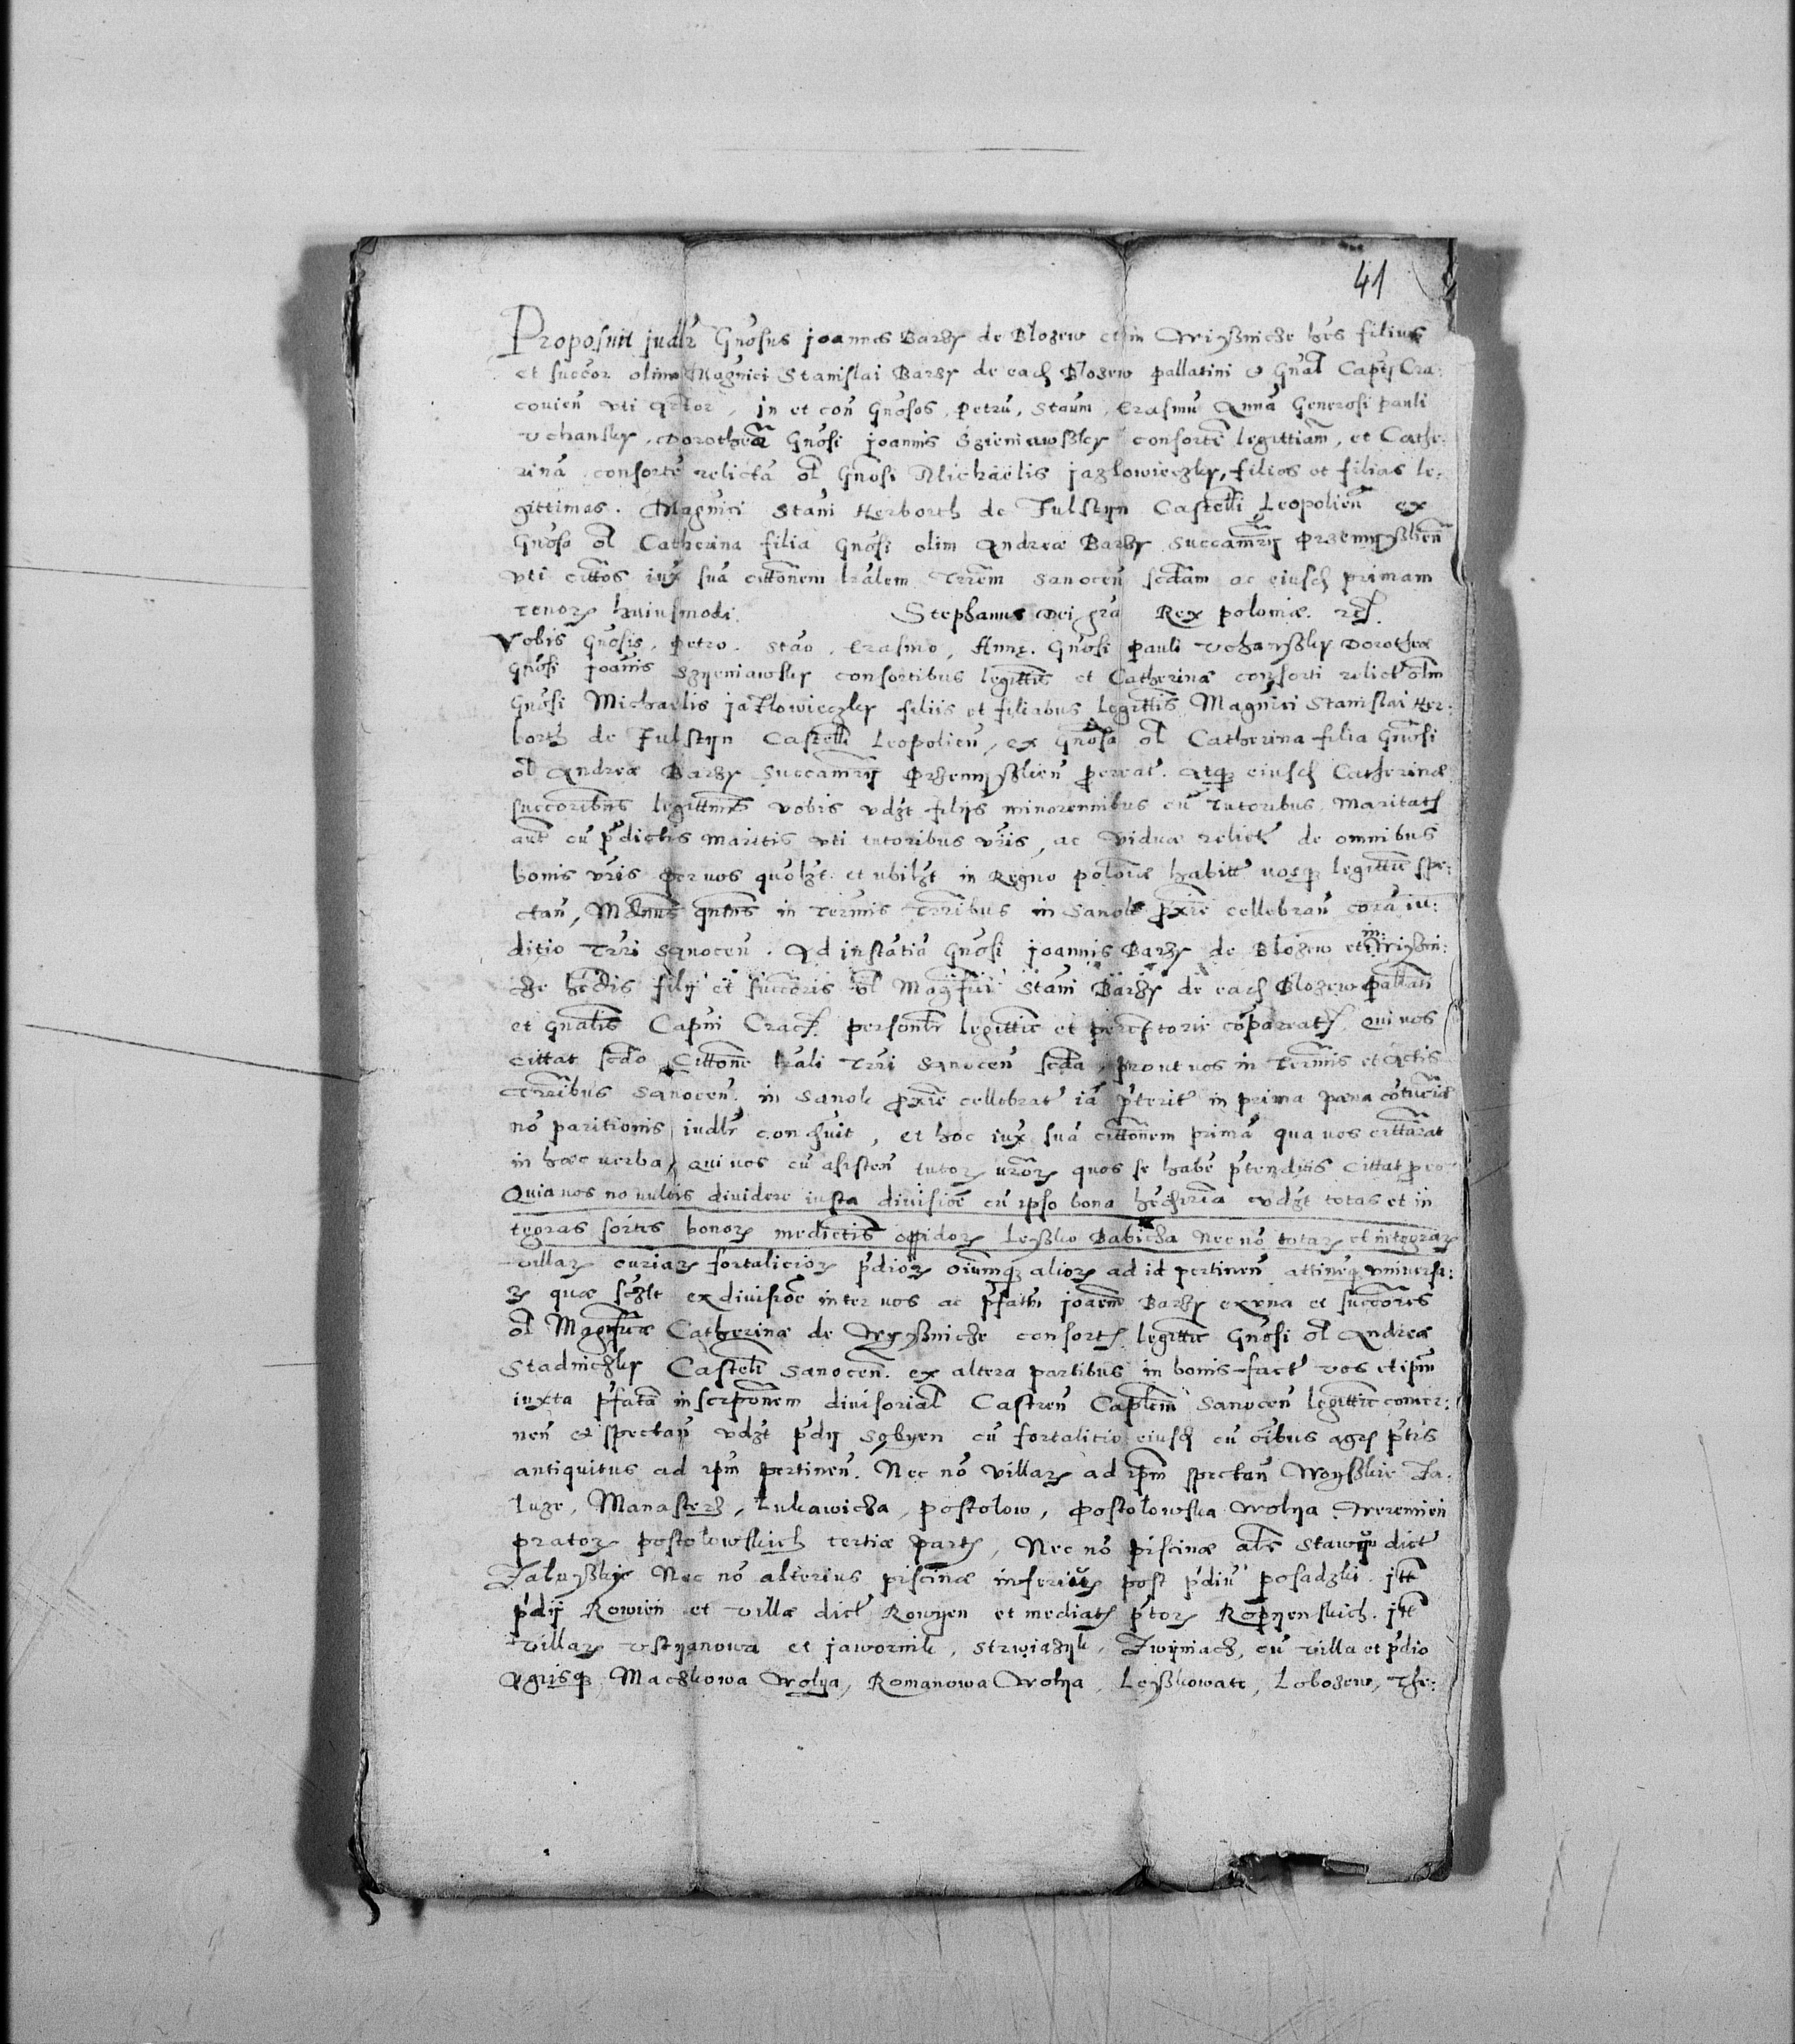 41
Proposuit judlr Gnosus joannes Barzy de Blozew et in Wrzyßnicze hes filius
et succor olim Magnici Stanislai Barzy de eadem Blozew pallatini & Gnal Captj Cra:
couien vti Actor, jn et con Gnosos, Petru, Staum, Erasmu Anna Generosi pauli
Vchansky, Dorothea Gnosi joannis Szieniawßky consorte legittiam, et Cathe:
rina consorte relicta ol Gnosi Michaelis jazlowieczky, filios et filias le:
gittimas. Magnici Stani Herborth de Fulstijn Castelli Leopolien ex
Gnosa ol Catherina filia Gnosi olim Andreæ Barzy Succamrij Przemyßlien
vti cittos iux sua cittonem tralem Trrem Sanocen scdam ac eiusd primam
tenoris huiusmodi. Stephanus Dei gra Rex poloniæ. rel.
Vobis Gnosis, Petro, Stao, Erasmo, Annę. Gnosi pauli Vchanßky Dorothea
Gnosi joanis Szyeniawsky consortibus legittis et Catherinæ consorti relict olim
Gnosi Michaelis jazlowieczky filiis et filiabus legittis Magnici Stanislai Her:
borth de Fulstijn Castelli Leopolien, ex Gnosa ol Catherina filia Gnosi
ol Andreæ Barzy Succamrij Przemyßlien procreat. Atq eiusd Catherinæ
succoribus legittimis vobis vdzt filijs minorennibus cu tutoribus, maritatis
aut cu pdictis maritis vti tutoribus vris, ac viduæ relict de omnibus
bonis vris per vos quolzt et ubilzt in Regno poloniæ habitt vosq legittie spe:
ctan, Mdamus qutns in Termis Trribus in Sanok proxie cellebran cora iu:
ditio Trri Sanocen. Ad instatia Gnosi joannis Barzy de Blozew et in Wrzyßni:
cze hedis filij et succoris ol Magfici Stani Barzy de eadem Blozew pallati
et Gnalis Capni Crac. personlr legittie et peremptorie compareatis. Qui vos
cittat scdo Cittone trali Trri Sanocen scda, prout vos in Termis et Actis
Trribus Sanocen. in Sanok proxie cellebrat ia pterit in prima pæna cotumciæ
no paritionis judlr conduit, et hoc iux sua cittonem prima qua vos cittarat
in hæc verba, Qui vos cu assisten tutor vror quos se habe ptenditis cittat pro eo
Quia vos no vultis dividere iusta divisioe cu ipso bona hedria vdzt totas et in
tegras sortes bonor medietis oppidor Leßko Babicza Nec no totar et integrar
villar curiar fortalicior pdior oiumq alior ad id pertinen attineq vniversi:
s quæ sczlt ex divisioe inter vos ac pfatu joanem Barzy ex vna et succores
ol Magficæ Catherinæ de Wrzyßnicze consortis legittie Gnosi ol Andreæ
Stadniczky Castelli Sanocen. ex altera partibus in bonis fact vos et ipm
iuxta pfata inscrponem divisorial Castren Captlem Sanocen legittie concer:
nen et spectan vdzt pdij Sobyen cu fortalitio eiusd cu oibus agris ptis
antiquitus ad ipm pertinen. Nec no villar ad ipm spectan Woyßkie Za:
luze, Manasterz, Lukawicza, postolow, postolowska Wolya, Weremien
prator postolowskich tertiæ partis, Nec no piscinæ als Stawu dict
Zaluyßkie Nec no alterius piscinæ inferius post pdiu posadzki. jtt
pdij Rowien et villæ dict Rowyen et mediatis ptor Ropyenskich. jtt
villar Vstyanowa et jawornik, Strwiazyk, Zwyniacz, cu villa et pdio
Agrisq Maczkowa Wolya, Romanowa Wolya, Leßkowate, Lobozew, The: